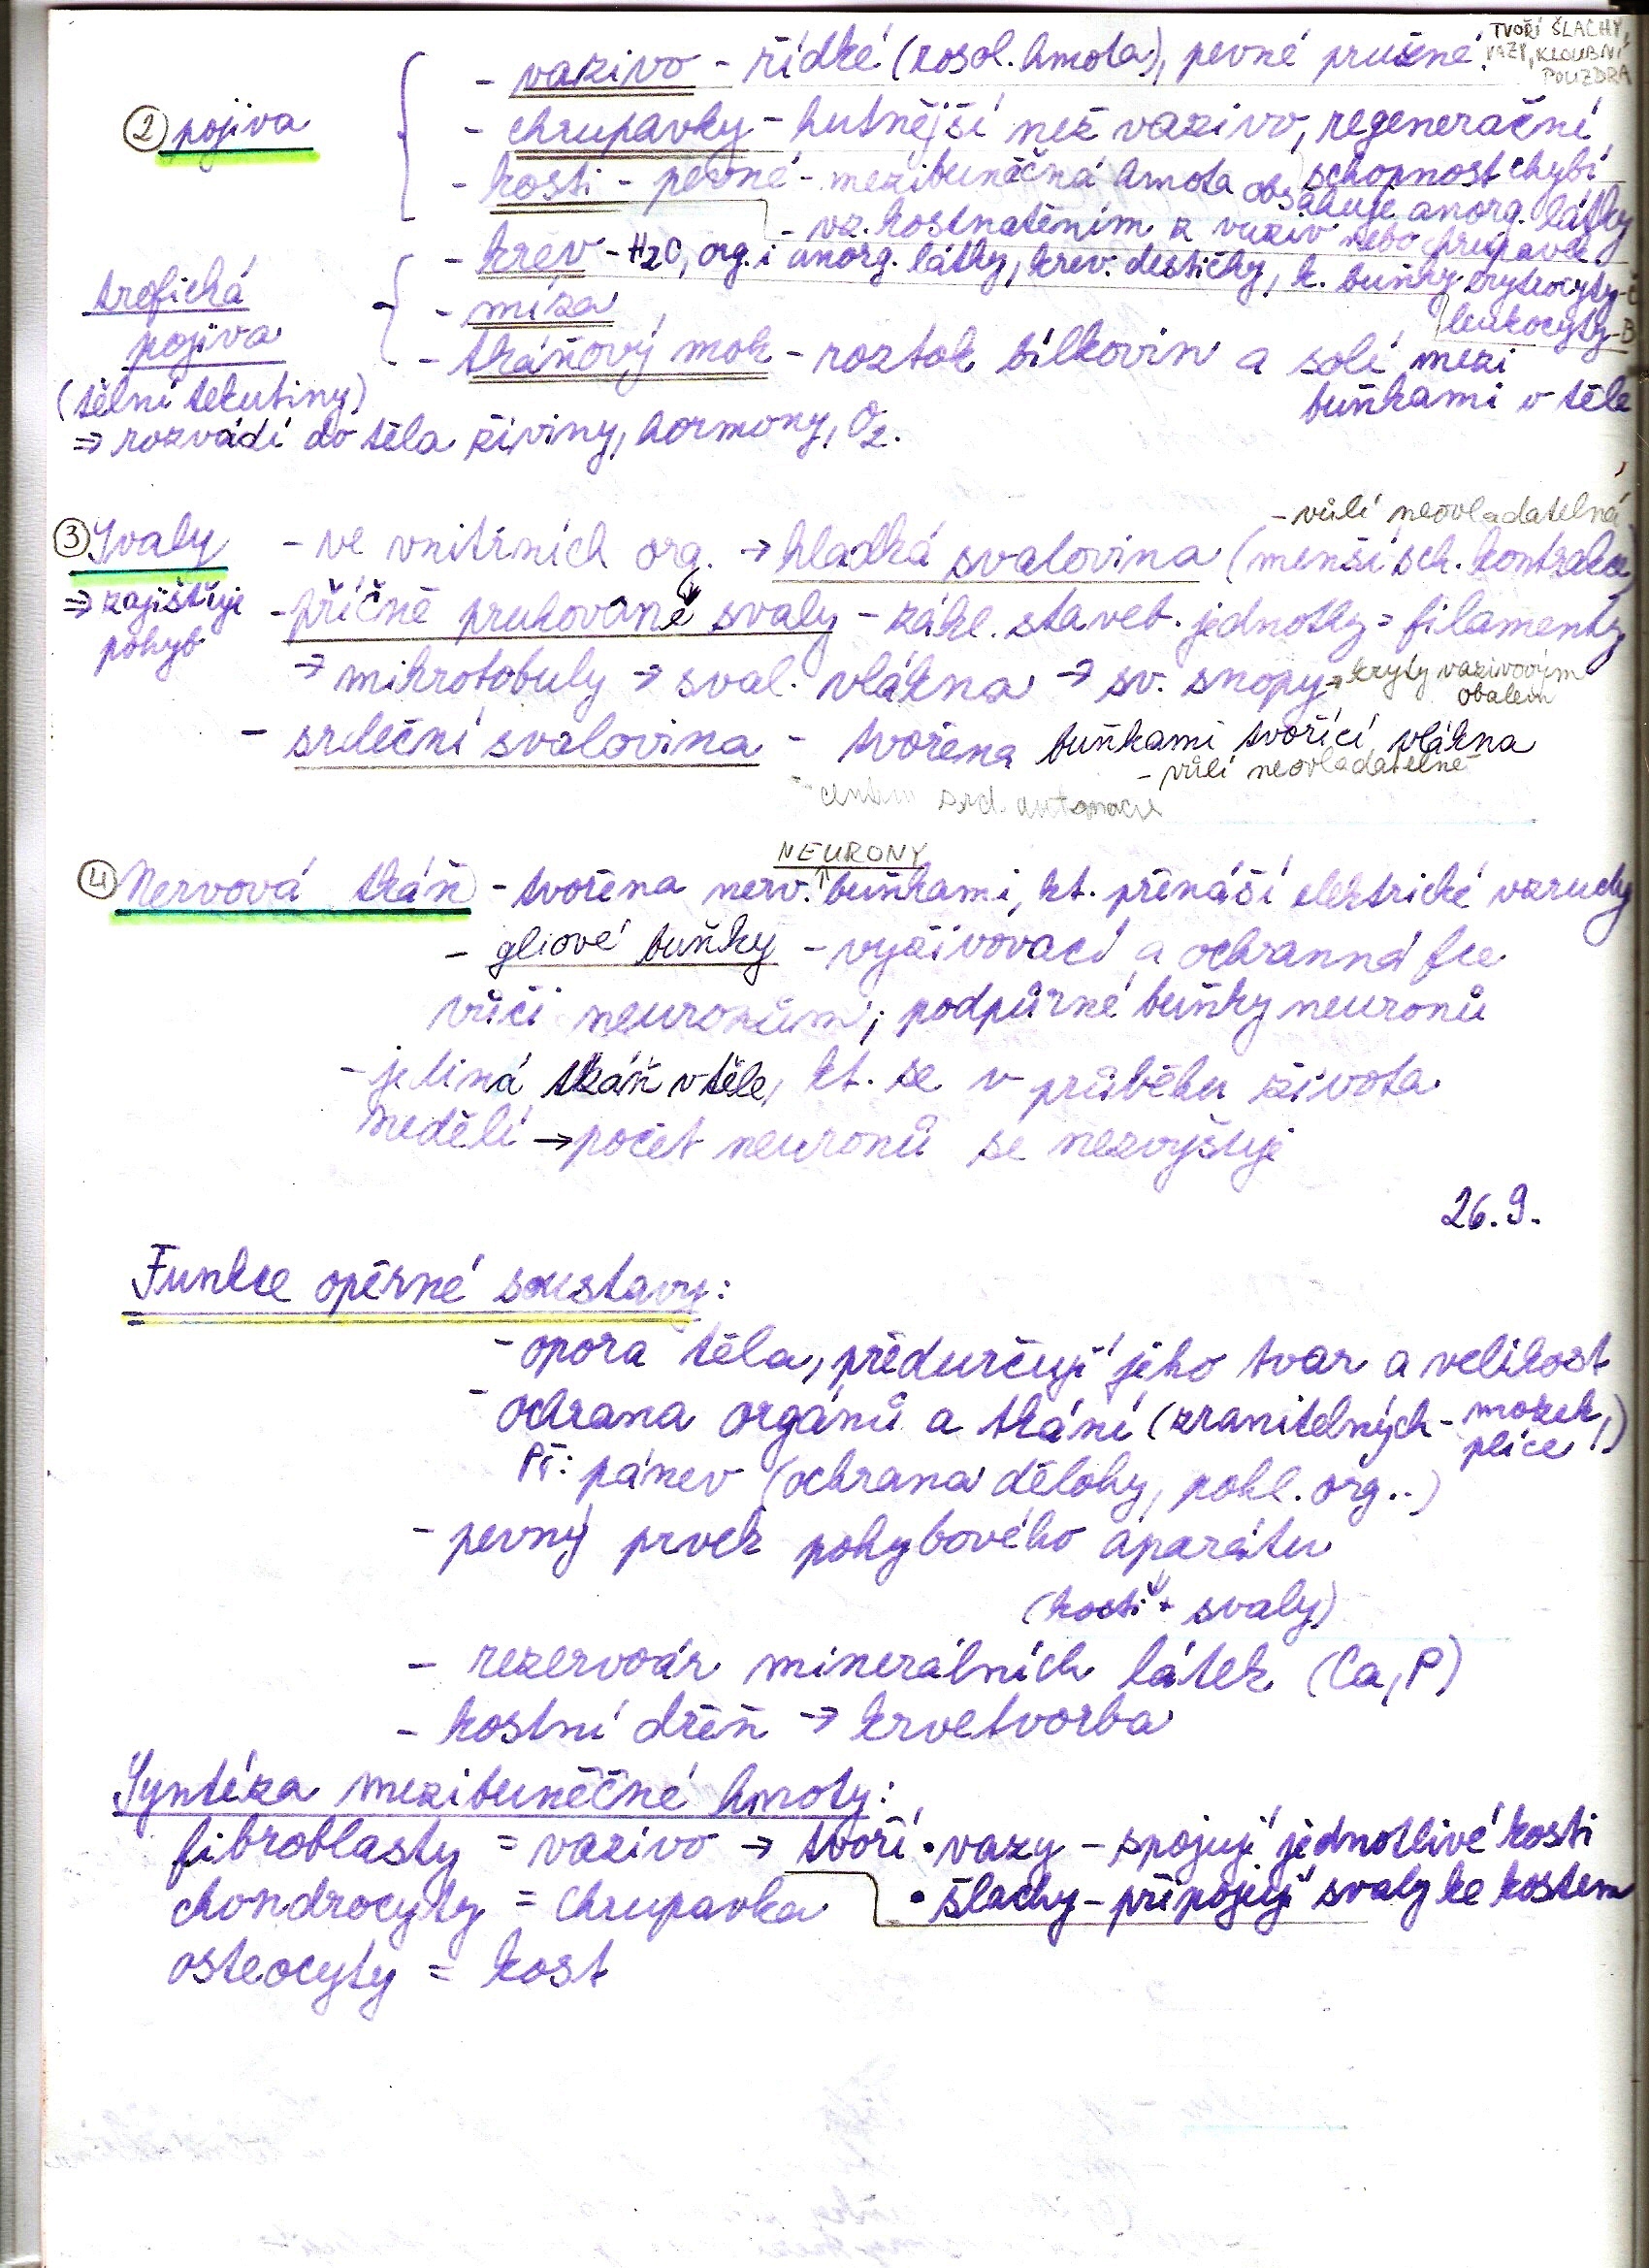 TVOŘÍ ŠLACHY,
VAZY, KLOUBNÍ
POUZDRA
- vazivo - řídké (rosol. hmota), pevné pružné
② pojiva
- chrupavky - hutnější než vazivo, regenerační
schopnost chybí
- kosti - pevné - mezibuněčná hmota obsahuje anorg. látky
- vz. kostnatěním z vaziv nebo chrupavek.
- krev - H2O, org. i anorg. látky, krev. destičky, k. buňky erytrocyty - Č
leukocyty - B
trofická
pojiva
(tělní tekutiny)
- míza
- tkáňový mok - roztok bílkovin a solí mezi
buňkami v těle
⇒ rozvádí do těla živiny, hormony, O2.
- vůlí neovladatelná
③ Svaly - ve vnitřních org. → hladká svalovina (menší sch. kontrakce)
⇒ zajišťuje
pohyb
- příčně pruhované svaly - zákl. staveb. jednotky = filamenty
→ mikrotobuly → sval. vlákna → sv. snopy → kryty vazivovým
obalem
- srdeční svalovina - tvořena buňkami tvořící vlákna
- vůlí neovladatelné
- centrum srd. automacie
NEURONY
④ Nervová tkáň - tvořena nerv. ↑ buňkami, kt. přenáší elektrické vzruchy
- gliové buňky - vyživovací a ochranná fce
vůči neuronům; podpůrné buňky neuronů
- jediná tkáň v těle, kt. se v průběhu života
nedělí → počet neuronů se nezvyšuje
26.9.
Funkce opěrné soustavy:
- opora těla, předurčují jeho tvar a velikost
- ochrana orgánů a tkání (zranitelných - mozek,
plíce,)
Př: pánev (ochrana dělohy, pohl. org..)
- pevný prvek pohybového aparátu
(kosti + svaly)
- rezervoár minerálních látek (Ca, P)
- kostní dřeň → krvetvorba
Syntéza mezibuněčné hmoty:
fibroblasty = vazivo → tvoří • vazy - spojují jednotlivé kosti
• šlachy - připojují svaly ke kostem
chondrocyty = chrupavka
osteocyty = kost